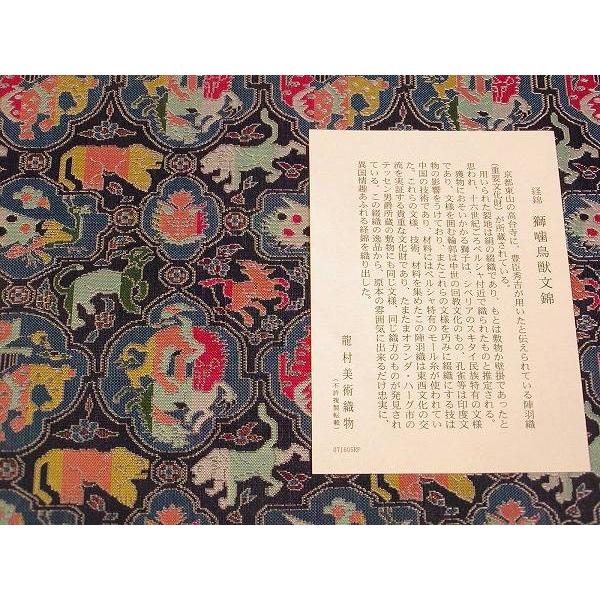 経錦　獅噛鳥獣文錦
京都東山の高台寺に、豊臣秀吉が用いたと伝えられている陣羽織
(重要文化財)が所蔵されている。
用いられた裂地は絹の綴織であり、もとは敷物か壁掛であったと
思われ、十六世紀ごろペルシャ付近で織られたものと推定される。
獲物におそいかかる獅子は、シベリアのスキタイ民族特有の文様
であり、文様を囲む輪郭は中世の回教文化のもの、孔雀等は印度文
物の影響をうけており、またこれらの文様を巧みに綴織にする技は
中国の技術であり、材料にはペルシャ特有のモール糸が使われてい
た。これらの文様、技術、材料を集めたこの陣羽織は東西文化の交
流を実証する貴重な文化財であり、たまたまオランダ・ハーグ市の
テッセン男爵所蔵の敷物にも同じ文様、同じ織方のものが発見され
ている。この綴織の逸品から、原本の雰囲気に出来るだけ忠実に、
異国情趣あふれる経錦を織り出した。
龍村美術織物
(不許複製転載)
071605RP